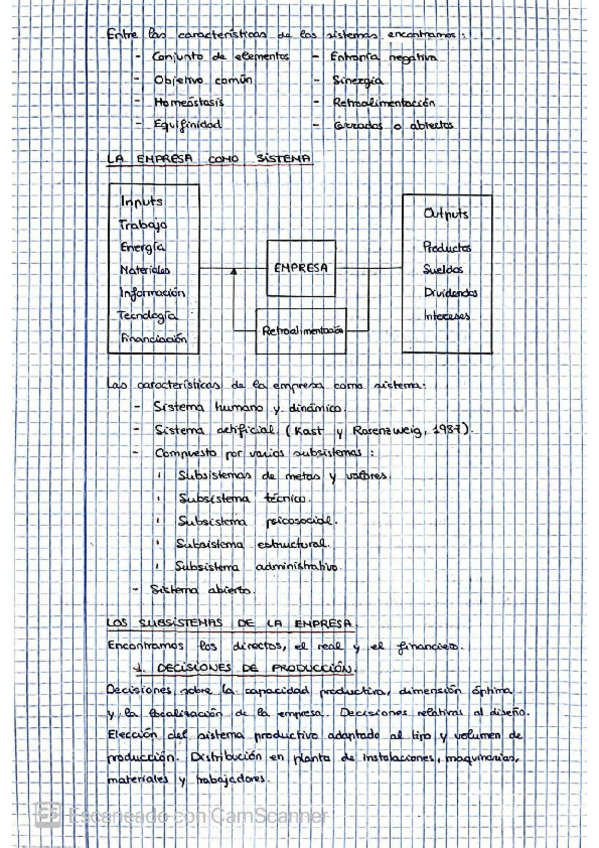 Entre las características de los sistemas encontramos:
- Conjunto de elementos - Entropía negativa
- Objetivo común - Sinergia
- Homeóstasis - Retroalimentación
- Equifinidad - Cerrados o abiertos
LA EMPRESA COMO SISTEMA
Inputs
Trabajo
Energía
Materiales
Información
Tecnología
Financiación
EMPRESA
Retroalimentación
Outputs
Productos
Sueldos
Dividendos
Intereses
Las características de la empresa como sistema:
- Sistema humano y dinámico.
- Sistema artificial. (Kast y Rosenzweig, 1987).
- Compuesto por varios subsistemas:
Subsistemas de metas y valores.
Subsistema técnico.
Subsistema psicosocial.
Subsistema estructural.
Subsistema administrativo.
- Sistema abierto.
LOS SUBSISTEMAS DE LA EMPRESA.
Encontramos los directos, el real y el financiero.
1. DECISIONES DE PRODUCCIÓN.
Decisiones sobre la capacidad productiva, dimensión óptima
y la localización de la empresa. Decisiones relativas al diseño.
Elección del sistema productivo adaptado al tipo y volumen de
producción. Distribución en planta de instalaciones, maquinarias,
materiales y trabajadores.
Escaneado con CamScanner